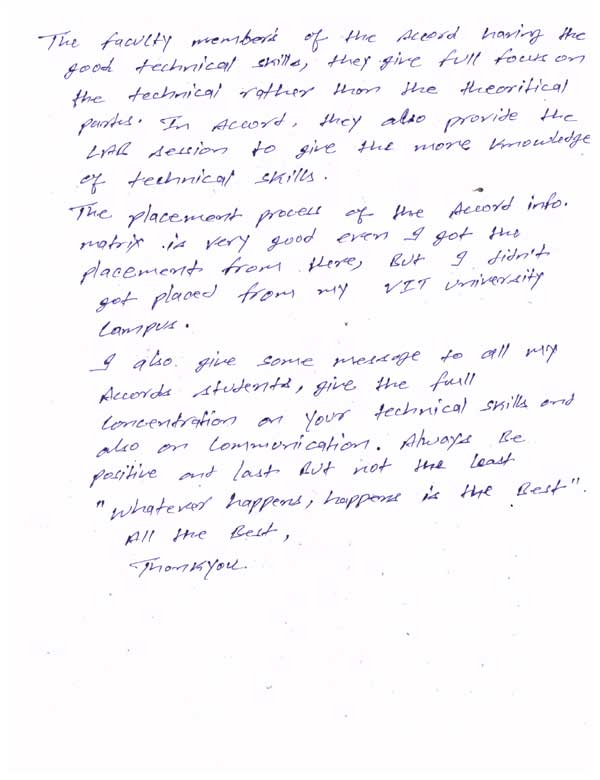 The faculty member's of the Accord having the
good technical skills, they give full focus on
the technical rather than the theoritical
parts. In Accord, they also provide the
LAB session to give the more knowledge
of technical skills.
The placement process of the Accord info.
matrix is very good even I got the
placement from there, But I didn't
got placed from my VIT university
campus.
I also give some message to all my
Accords students, give the full
concentration on your technical skills and
also on communication. Always Be
positive and last But not the least
"whatever happens, happens is the Best".
All the Best,
Thankyou.